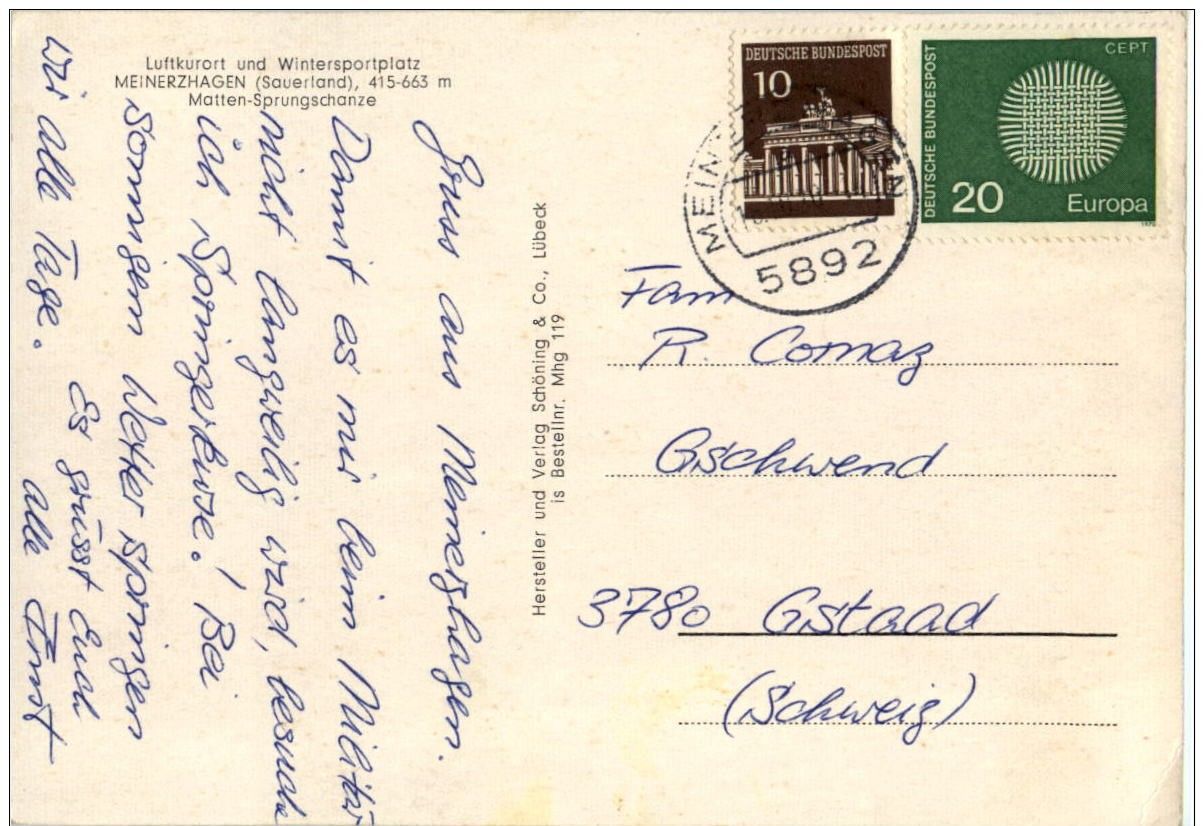 Luftkurort und Wintersportplatz
MEINERZHAGEN (Sauerland), 415-663 m
Matten-Sprungschanze
Gruss aus Meinerzhagen.
Damit es mir beim Militär
nicht langweilig wird, besuche
ich Springerkurse! Bei
sonnigem Wetter springen
wir alle Tage.
Es grüsst Euch
alle Ernst
Hersteller und Verlag Schöning & Co., Lübeck
is Bestellnr. Mhg 119
DEUTSCHE BUNDESPOST
10
DEUTSCHE BUNDESPOST
CEPT
20
Europa
1970
5892
Fam
R. Comaz
Gschwend
3780 Gstaad
(Schweiz)